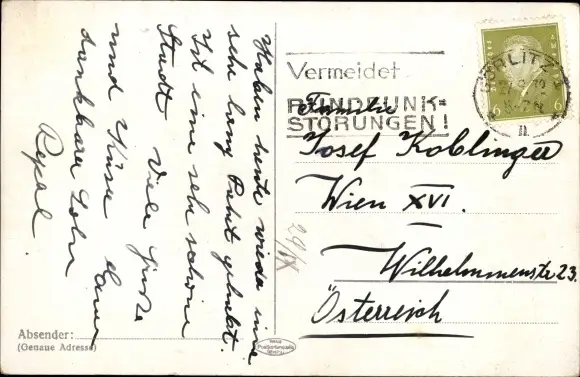 Haben heute wieder eine
sehr lange Fahrt gehabt.
Ist eine sehr schöne
Stadt Viele Grüße
und Küsse Euer
dankbarer Sohn
Vermeidet
RUNDFUNK=
STÖRUNGEN!
GÖRLITZ
6
6
Familie
Josef Koblinger
Wien XVI.
Wilhelminenstr 23.
Österreich
29/IX
Absender:
(Genaue Adresse)